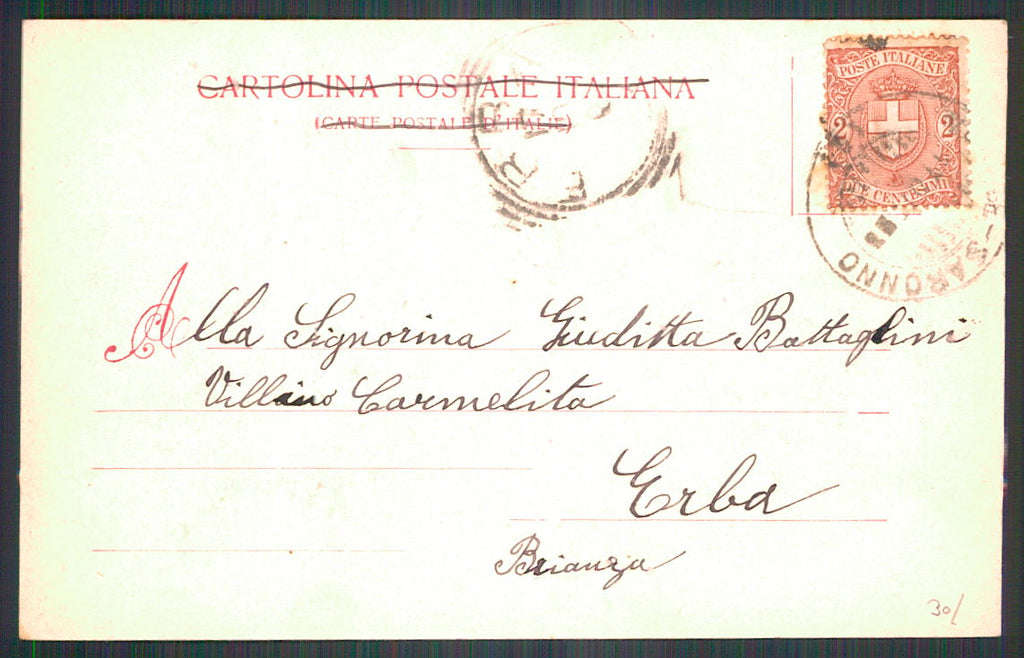 CARTOLINA POSTALE ITALIANA
(CARTE POSTALE D'ITALIE)
POSTE ITALIANE
2 2
DUE CENTESIMI
SARONNO
Alla Signorina Giuditta Battaglini
Villino Carmelita
Erba
Brianza
30/